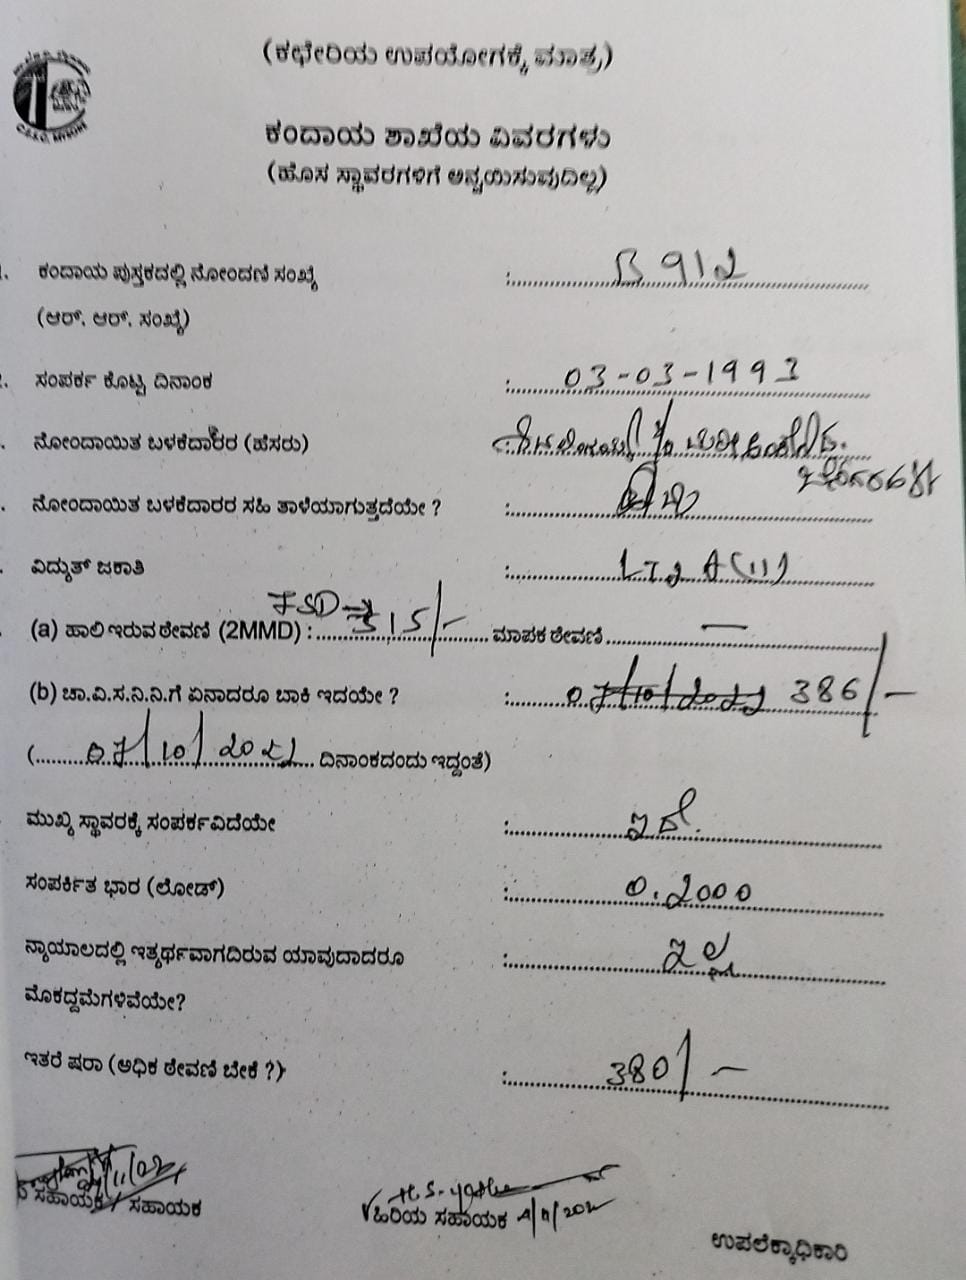 (ಕಛೇರಿಯ ಉಪಯೋಗಕ್ಕೆ ಮಾತ್ರ)
ಕಂದಾಯ ಶಾಖೆಯ ವಿವರಗಳು
(ಹೊಸ ಸ್ಥಾವರಗಳಿಗೆ ಅನ್ವಯಿಸುವುದಿಲ್ಲ)
ಕಂದಾಯ ಪುಸ್ತಕದಲ್ಲಿ ನೋಂದಣಿ ಸಂಖ್ಯೆ : B 912
(ಆರ್. ಆರ್. ಸಂಖ್ಯೆ)
ಸಂಪರ್ಕ ಕೊಟ್ಟ ದಿನಾಂಕ : 03-03-1993
ನೋಂದಾಯಿತ ಬಳಕೆದಾರರ (ಹೆಸರು) :
ನೋಂದಾಯಿತ ಬಳಕೆದಾರರ ಸಹಿ ತಾಳೆಯಾಗುತ್ತದೆಯೇ ? :
ವಿದ್ಯುತ್ ಜಕಾತಿ : LT2 A(ii)
FSD
(a) ಹಾಲಿ ಇರುವ ಠೇವಣಿ (2MMD) : 315/- ಮಾಪಕ ಠೇವಣಿ —
(b) ಚಾ.ವಿ.ಸ.ನಿ.ನಿ.ಗೆ ಏನಾದರೂ ಬಾಕಿ ಇದಯೇ ? : 386/-
(07/10/2021 ದಿನಾಂಕದಂದು ಇದ್ದಂತೆ)
ಮುಖ್ಯ ಸ್ಥಾವರಕ್ಕೆ ಸಂಪರ್ಕವಿದೆಯೇ : ಇದೆ.
ಸಂಪರ್ಕಿತ ಭಾರ (ಲೋಡ್) : 0.2000
ನ್ಯಾಯಾಲದಲ್ಲಿ ಇತ್ಯರ್ಥವಾಗದಿರುವ ಯಾವುದಾದರೂ : ಇಲ್ಲ
ಮೊಕದ್ದಮೆಗಳಿವೆಯೇ?
ಇತರೆ ಷರಾ (ಅಧಿಕ ಠೇವಣಿ ಬೇಕೆ ?) : 380/-
ಸಹಾಯಕ / ಸಹಾಯಕ
ಹಿರಿಯ ಸಹಾಯಕ
ಉಪಲೆಕ್ಕಾಧಿಕಾರಿ